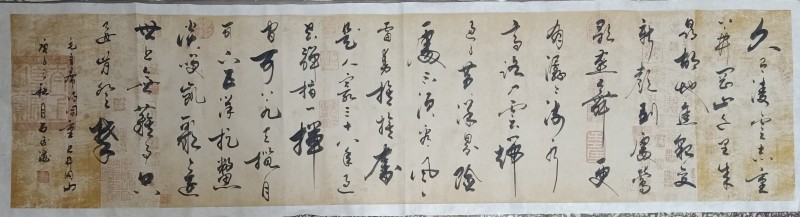 久有凌云志重
上井冈山千里来
寻故地旧貌变
新颜到处莺
歌燕舞更
有潺潺流水
高路入云端
过了黄洋界险
处不须看风
雷动旌旗奋
是人寰三十八年过
去弹指一挥
间可上九天揽月
可下五洋捉鳖
谈笑凯歌还
世上无难事只
要肯登攀
毛主席诗词重上井冈山
秋月